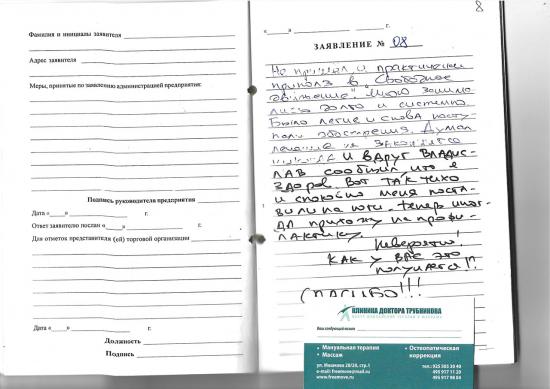 Фамилия и инициалы заявителя
Адрес заявителя
Меры, принятые по заявлению администрацией предприятия:
Подпись руководителя предприятия
Дата «___» г.
Ответ заявителю послан «___» г.
Для отметок представителя (ей) торговой организации
Дата «___» г.
Должность
Подпись
8
«___» г.
ЗАЯВЛЕНИЕ № 08
Не пришел и практически
приполз в "Свободное
движение". Мною занима-
лись долго и системно.
Было легче и снова насту-
пали обострения. Думал
лечение не закончится
никогда И вдруг Владис-
лав сообщил что я
здоров. Вот так тихо
и спокойно меня поста-
вили на ноги. Теперь иног-
да прихожу на профи-
лактику.
Невероятно!
Как у вас это
получается!?
Спасибо!!!
КЛИНИКА ДОКТОРА ТРУБНИКОВА
Ваш следующий визит
• Мануальная терапия
• Массаж
• Остеопатическая
коррекция
ул. Ивакова 28/20, стр.1
e-mail: freemove@mail.ru
www.freemove.ru
тел.: 925 505 30 40
495 917 11 20
495 917 98 01